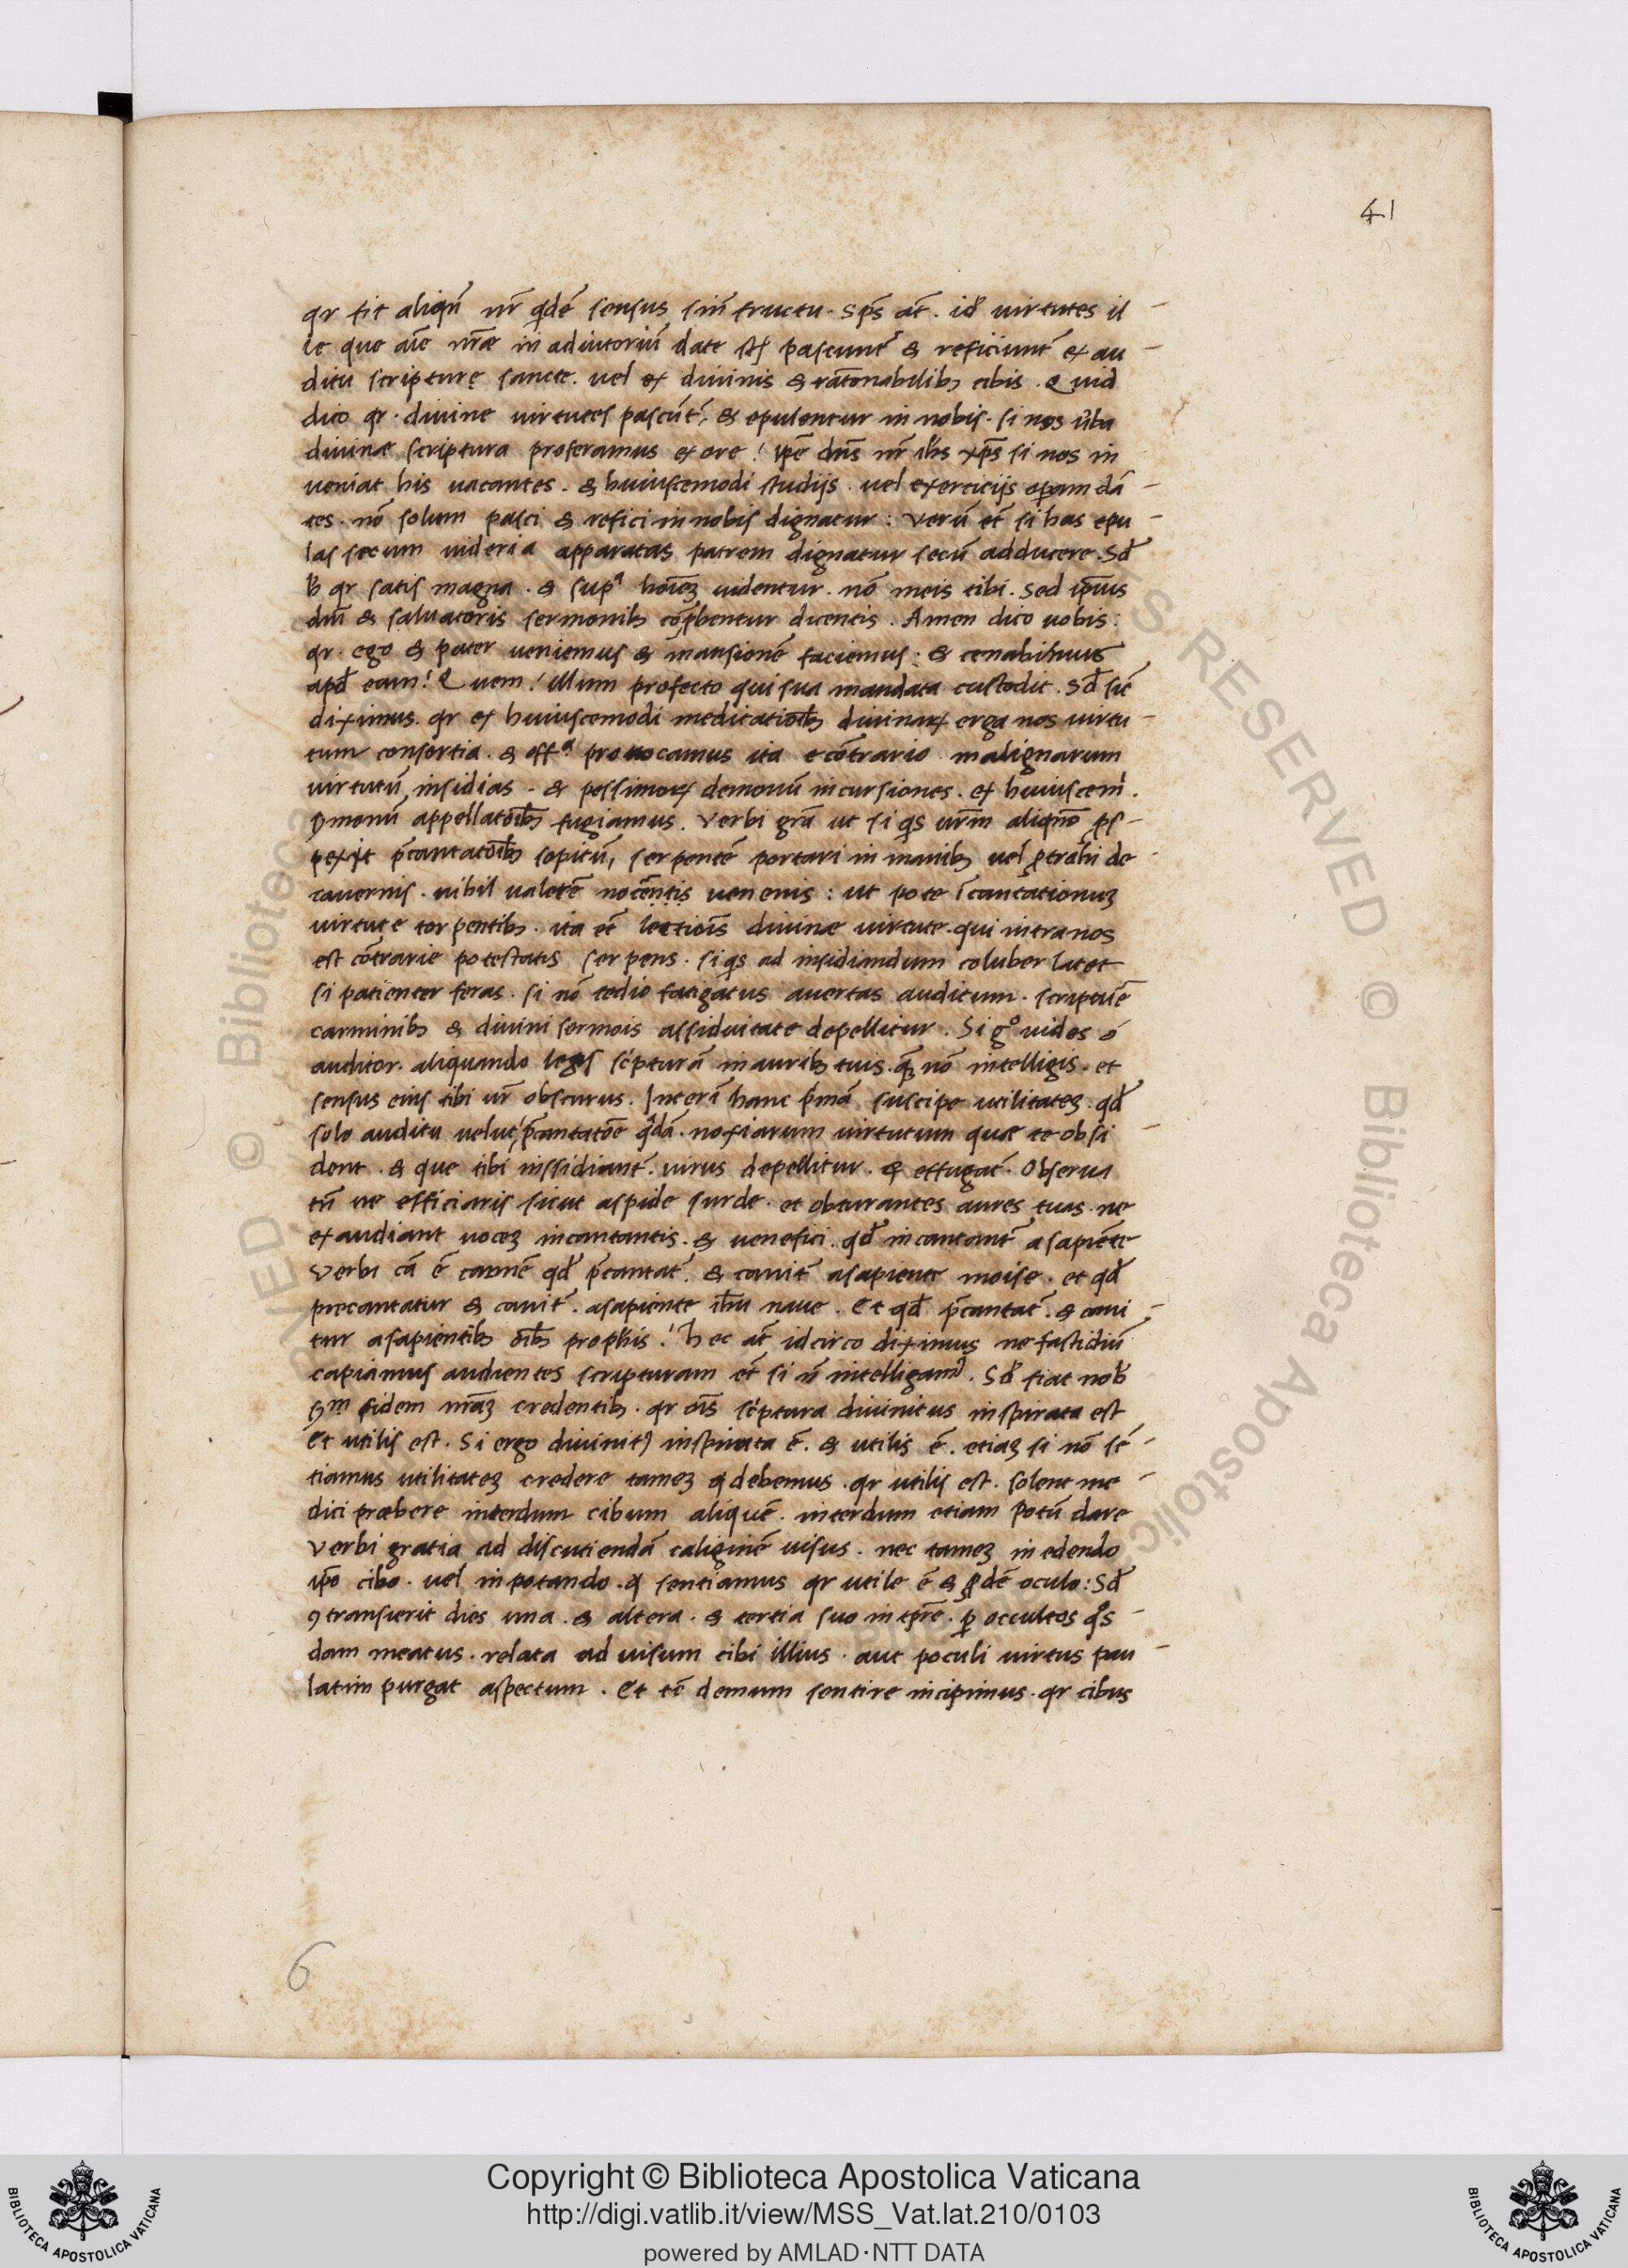 41
qr fit aliqñ nr̃ qdẽ sensus sin̄ fructu. Sps̃ at̃. id̃ uirtutes il-
le que aĩe nr̃æ in adiutoriũ date st̃ pascunt̃ & reficiunt̃ ex au-
ditu scripturę sancte. uel ex diuinis & rãtonabilib; cibis. Quid
dico qr. diuine uirtutes pascũt̃, & epulentur in nobis. si nos ũba
diuinæ scriptura proferamus ex ore! ip̃e dñs nr̃ ihs xp̃s si nos in
ueniat his uacantes. & huiuscemodi studijs. uel exercicijs operam dã-
tes. nõ solum pasci & refici in nobis dignatur: Verũ et̃ si has epu-
las secum uideria apparatas patrem dignatur secũ adducere. Sd̃
h̃ qr satis magna. & supª hoĩez uidentur. nõ meis tibi. Sed ip̃ius
dñi & saluatoris sermonib; cõp̃bentur dicentis. Amen dico uobis:
qr. ego & pater ueniemus & mansionẽ faciemus: & cenabimus
apd̃ eam! Quem! illum profecto qui sua mandata custodit. Sd̃ sic̃
diximus. qr ex huiuscemodi meditatiõib; diuinaꝝ erga nos uirtu-
tum consortia. & offª prouocamus ita econ̄trario malignarum
uirtutũ insidias. & pessimoꝝ demonũ incursiones. ex huiuscem̃.
ꝯmonũ appellatõib; fugiamus. Verbi gr̃a ut si qis ur̃m aliqñõ ps-
pexit p̃cantatõib; sopitũ, serpentẽ portari in manib; uel ꝓtrahi de
cauernis. nihil ualetẽ nocentis uenenis: ut pote ĩcantationuz
uirtute torpentib;. ita et̃ lectiõis diuinæ uirtute. qui intra nos
est cõtrarie potestatis serpens. si qis ad insidiandum coluber latet
si patienter feras. si nõ tedio fatigatus auertas auditum. scripturẽ
carminib; & diuini sermois assiduitate depellitur. Si gº uides ó
auditor. aliquando legis sc̃pturã in aurib; tuis. quã nõ intelligis. et
sensus eius tibi ur̃ obscurus. Interĩ hanc p̃mã suscipe utilitatez. qd̃
solo auditu uelut p̃cantatõe qdã. noxiarum uirtutum quæ te obsi-
dent. & que tibi inssidiant̃. uirus depellitur. & effugat̃. Obserua
tñ ne efficiaris sicut aspide surde. et obturantes aures tuas. ne
exaudiant uocez incantantis. & uenefici. qd̃ incantant̃ a sapiẽte
Verbi cã ẽ carmẽ qd̃ p̃cantat̃. & canit̃ asapiente moise. et qd̃
precantatur & canit̃. asapiente ihu naue. Et qd̃ p̃cantat̃. & cani-
tur asapientib; oĩb; prophis! hec at̃ idcirco diximus ne fastidiũ
capiamus audientes scripturam et̃ si ñ intelligamꝰ. Sd̃ fiat nob̃
ẜm fidem nr̃az credentib;. qr oĩs sc̃ptura diuinitus inspirata est
Et utilis est. Si ergo diuinitꝰ inspirata ẽ. & utilis ẽ. etiaz si nõ sẽ-
tiamus utilitatez credere tamez q debemus. qr utilis est. solent me-
dici præbere interdum cibum aliquẽ. interdum etiam potũ dare
Verbi gratia ad discutiendã caliginẽ uisus. nec tamez in edendo
ip̃o cibo. uel in potando. q sentiamus qr utile ẽ & p̃dẽ oculo: Sd̃
ꝯtransierit dies una. & altera. & tertia suo in tp̃re. ꝑ occultos qos-
dam meatus. relata ad uisum cibi illius. aut poculi uirtus pau-
latim purgat aspectum. Et tc̃ demum sentire incipimus. qr cibus
6
Copyright © Biblioteca Apostolica Vaticana
http://digi.vatlib.it/view/MSS_Vat.lat.210/0103
powered by AMLAD·NTT DATA